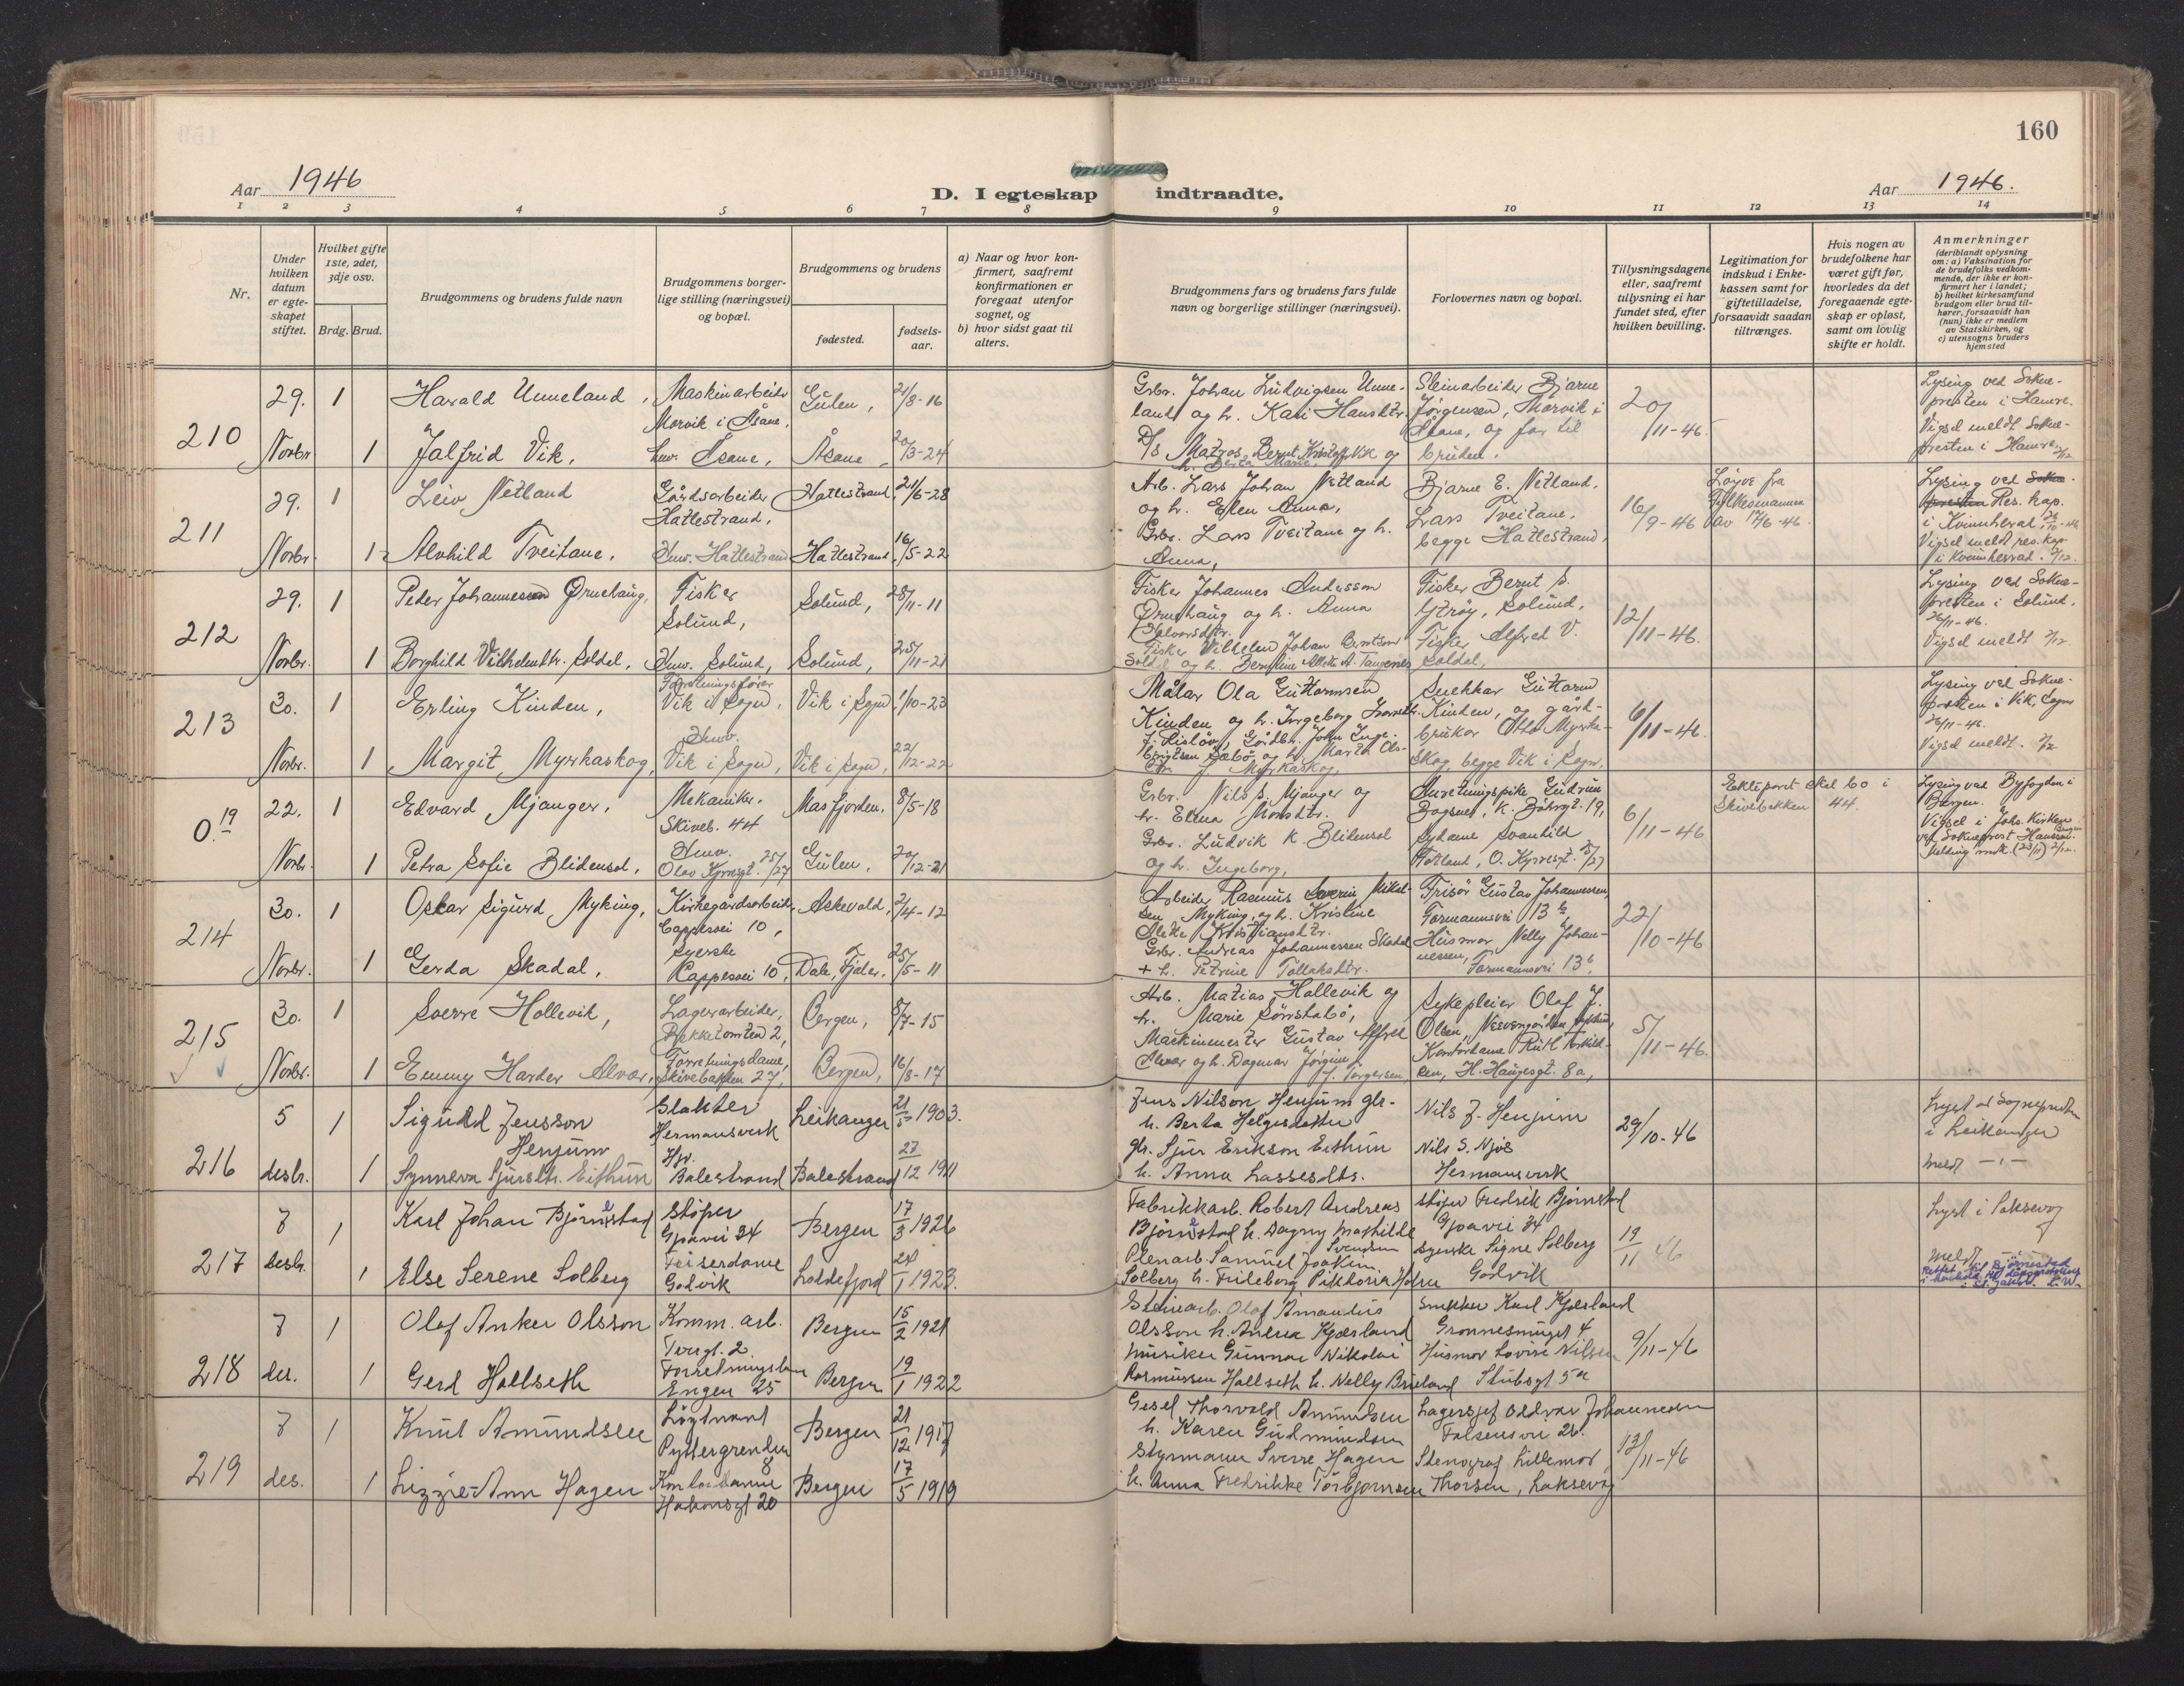 160
Aar 1946
D. I egteskap indtraadte.
Aar 1946.
1 2 3 4 5 6 7 8 9 10 11 12 13 14
Nr.
Under hvilken datum er egteskapet stiftet.
Hvilket gifte 1ste, 2det, 3dje osv.
Brdg. Brud.
Brudgommens og brudens fulde navn
Brudgommens borgerlige stilling (næringsvei) og bopæl.
Brudgommens og brudens
fødested.
fødselsaar.
a) Naar og hvor konfirmert, saafremt konfirmationen er foregaat utenfor sognet, og
b) hvor sidst gaat til alters.
Brudgommens fars og brudens fars fulde navn og borgerlige stillinger (næringsvei).
Forlovernes navn og bopæl.
Tillysningsdagene eller, saafremt tillysning ei har fundet sted, efter hvilken bevilling.
Legitimation for indskud i Enkekassen samt for giftetilladelse, forsaavidt saadan tiltrænges.
Hvis nogen av brudefolkene har været gift før, hvorledes da det foregaaende egteskap er opløst, samt om lovlig skifte er holdt.
Anmerkninger
(deriblandt oplysning om: a) Vaksination for de brudefolks vedkommende, der ikke er konfirmert her i landet;
b) hvilket kirkesamfund brudgom eller brud tilhører, forsaavidt han (hun) ikke er medlem av Statskirken, og
c) utensogns bruders hjemsted
210
29. 1 Harald Unneland, Maskinarbeider Morvik i Åsane, Gulen, 21/8-16
Norbr 1 Jalfrid Vik, hmv. Åsane, Åsane, 20/3-24
Grbr. Johan Ludvigsen Unneland og h. Kari Hansdtr.
D/s Matros Bernt Kristoff. Vik og h. Berta Marie,
Steinarbeider Bjarne Jørgensen, Morvik i Åsane, og far til bruden.
20/11-46.
Lysing ved Soknepresten i Hamre.
Vigsel meldt Soknepresten i Hamre 2/12
211
29. 1 Leiv Netland Gårdsarbeider Hatlestrand, Hatlestrand, 21/6-28
Norbr 1 Alvhild Tveitane, Hmv. Hatlestrand Hatlestrand, 16/5-22
Arb. Lars Johan Netland og h. Ellen Anna,
Grbr. Lars Tveitane og h. Anna,
Bjarne E. Netland,
Lars Tveitane,
begge Hatlestrand,
16/9-46
Løyve fra Fylkesmannen av 17/6-46.
Lysing ved Res. kap. i Kvinnherad 26/10-46
Vigsel meldt res. kap. i Kvinnherad. 2/12.
212
29. 1 Peder Johannesen Ørnehaug, Fisker Solund, Solund, 28/11-11
Norbr. 1 Borghild Vilhelmdtr. Soldal, Hmv. Solund, Solund, 25/11-21
Fisker Johannes Andersson Ørnehaug og h. Anna Halvorsdtr.
Fisker Vilhelm Johan Berntsen Soldal og h. Berntine Alette A. Tangenes
Fisker Bernt S. Ytrøy, Solund,
Fisker Alfred V. Soldal,
12/11-46.
Lysing ved Soknepresten i Solund, 26/11-46.
Vigsel meldt 2/12.
213
30. 1 Erling Kinden, Forretningsfører Vik i Sogn, Vik i Sogn, 1/10-23
Norbr. 1 Margit Myrkaskog, Hmv. Vik i Sogn, Vik i Sogn, 22/12-22
Målar Ola Guttormsen Kinden og h. Ingeborg Iversdtr. f. Risløv,
Gårdbr. John Ingebrigtsen Sæbø og h. Marta Olsdtr. f. Myrkaskog,
Snekkar Guttorm Kinden, og gårdbrukar Otto Myrkaskog, begge Vik i Sogn.
6/11-46.
Lysing ved Soknepresten i Vik, Sogn 26/11-46.
Vigsel meldt. 2/12
0.19
22. 1 Edvard Mjanger, Mekaniker. Skiveb. 44 Masfjorden, 8/5-18
Norbr. 1 Petra Sofie Blidensol, Hmv. Olav Kyrresgt. 25/27 Gulen, 20/12-21
Grbr. Nils S. Mjanger og h. Elina Monsdtr.
Grbr. Ludvik K. Blidensol og h. Ingeborg,
6/11-46
Skivebakken 44.
Lysing ved Byfogden i Bergen.
Vigsel i Johs. Kirken ved Sokneprest
214
30. 1 Oskar Sigurd Myking, Kirkegårdsarbeider, Cappesvei 10, Askevold, 2/4-12
Norbr. 1 Gerda Skadal, Syerske Kappesvei 10, Dale, Fjaler. 25/5-11
Arbeider Rasmus Severin Mikelsen Myking, og h. Kristine Alette Kristiansdtr.
Grbr. Andreas Johannessen Skadal + h. Petrine Tollaksdtr.
Frisør Gustav Johannessen, Formannsvei 13 b,
Husmor Nelly Johannessen, Formannsvei 13 b,
22/10-46
215
30. 1 Sverre Hollevik, Lagerarbeider, Bekketomten 2, Bergen, 8/7-15
Norbr. 1 Emmy Harder Alvær, Forretningsdame, Skivebakken 27, Bergen, 16/8-17
Arb. Matias Hollevik og h. Marie Sønstabø,
Maskinmester Gustav Alfred Alvær og h. Dagmar Jørgine f. Torgersen,
Sykepleier Olaf J. Olsen,
Kontordame Ruth H. Haugesgt. 8a,
5/11-46.
216
5 1 Sigurd Jensson Henjum Slakter Hermansverk Leikanger 21/5 1903.
desbr. 1 Synneva Sjursdtr. Eithun Hv. Balestrand Balestrand 27/12 1911
Jens Nilson Henjum gbr. h. Berta Helgesdotter
gbr. Sjur Erikson Eithun h. Anna Lassesdtr.
Nils J. Henjum
Nils S. Njøs
Hermansverk
29/10-46
Lyst ved Sognepresten i Leikanger
meldt -"-
217
7 1 Karl Johan Bjørnestad støper Gjøavei 34 Bergen 17/3 1926
desbr. 1 Else Serene Solberg Friserdame Godvik Loddefjord 24/1 1923.
Fabrikkarb. Robert Andreas Bjørnestad h. Dagny Mathilde Svendsen
Plenarb. Samuel Joakim Solberg h. Frideborg Viktoria Holm
støper Fredrik Bjørnstad Gjøavei 34
syerske Signe Solberg Godvik
19/11 46
Lyst i Laksevåg
meldt -"-
Rettet til Bjørnestad
218
7 1 Olaf Anker Olsson Komm. arb. Torgt. 2. Bergen 15/2 1921
des. 1 Gerd Hallseth Forretningsdame Engen 25 Bergen 19/1 1922
Steinarb. Olaf Amandus Olsson h. Anna Kjærland
Musiker Gunnar Nikolai Rasmussen Hallseth h. Nelly Brueland
Snekker Karl Kjærland Grønnesmuget 4
Husmor Lovise Nilsen Stubsgt 5a
9/11-46
219
7 1 Knut Amundsen Løytnant Pyttergrenden 8 Bergen 21/12 1917
des. 1 Lizzie-Ann Hagen Kontordame Hakonsgt 20 Bergen 17/5 1919
Gesel Thorvald Amundsen h. Karen Gudmundsen
Styrmann Sverre Hagen h. Anna Fredrikke Torbjørnsen
Lagersjef Oddvar Johannesen Falsensvei 26.
Stenograf Lillemor Thorsen, Laksevåg
13/11-46